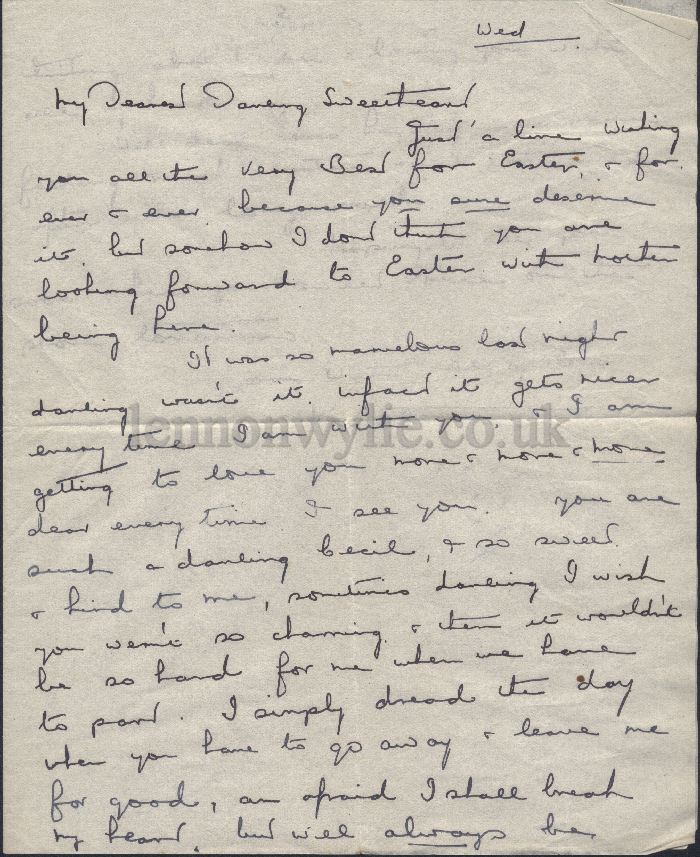 Wed
My Dearest Darling Sweetheart
Just a line wishing
you all the very Best for Easter, & for
ever & ever because you sure deserve
it, but somehow I don't think you are
looking forward to Easter with
being here.
It was so marvelous last night
darling wasn't it. infact it gets nicer
every time I am with you. & I am
lennonwylie.co.uk
getting to love you more & more & more
dear every time I see you. You are
such a darling Cecil, & so sweet
& kind to me, sometimes darling I wish
you weren't so charming & then it wouldn't
be so hard for me when we have
to part. I simply dread the day
when you have to go away & leave me
for good, am afraid I shall break
my heart, but will always be